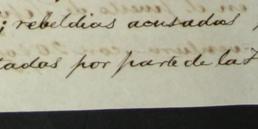 ; rebeldias acusadas
tadas por parte de la F